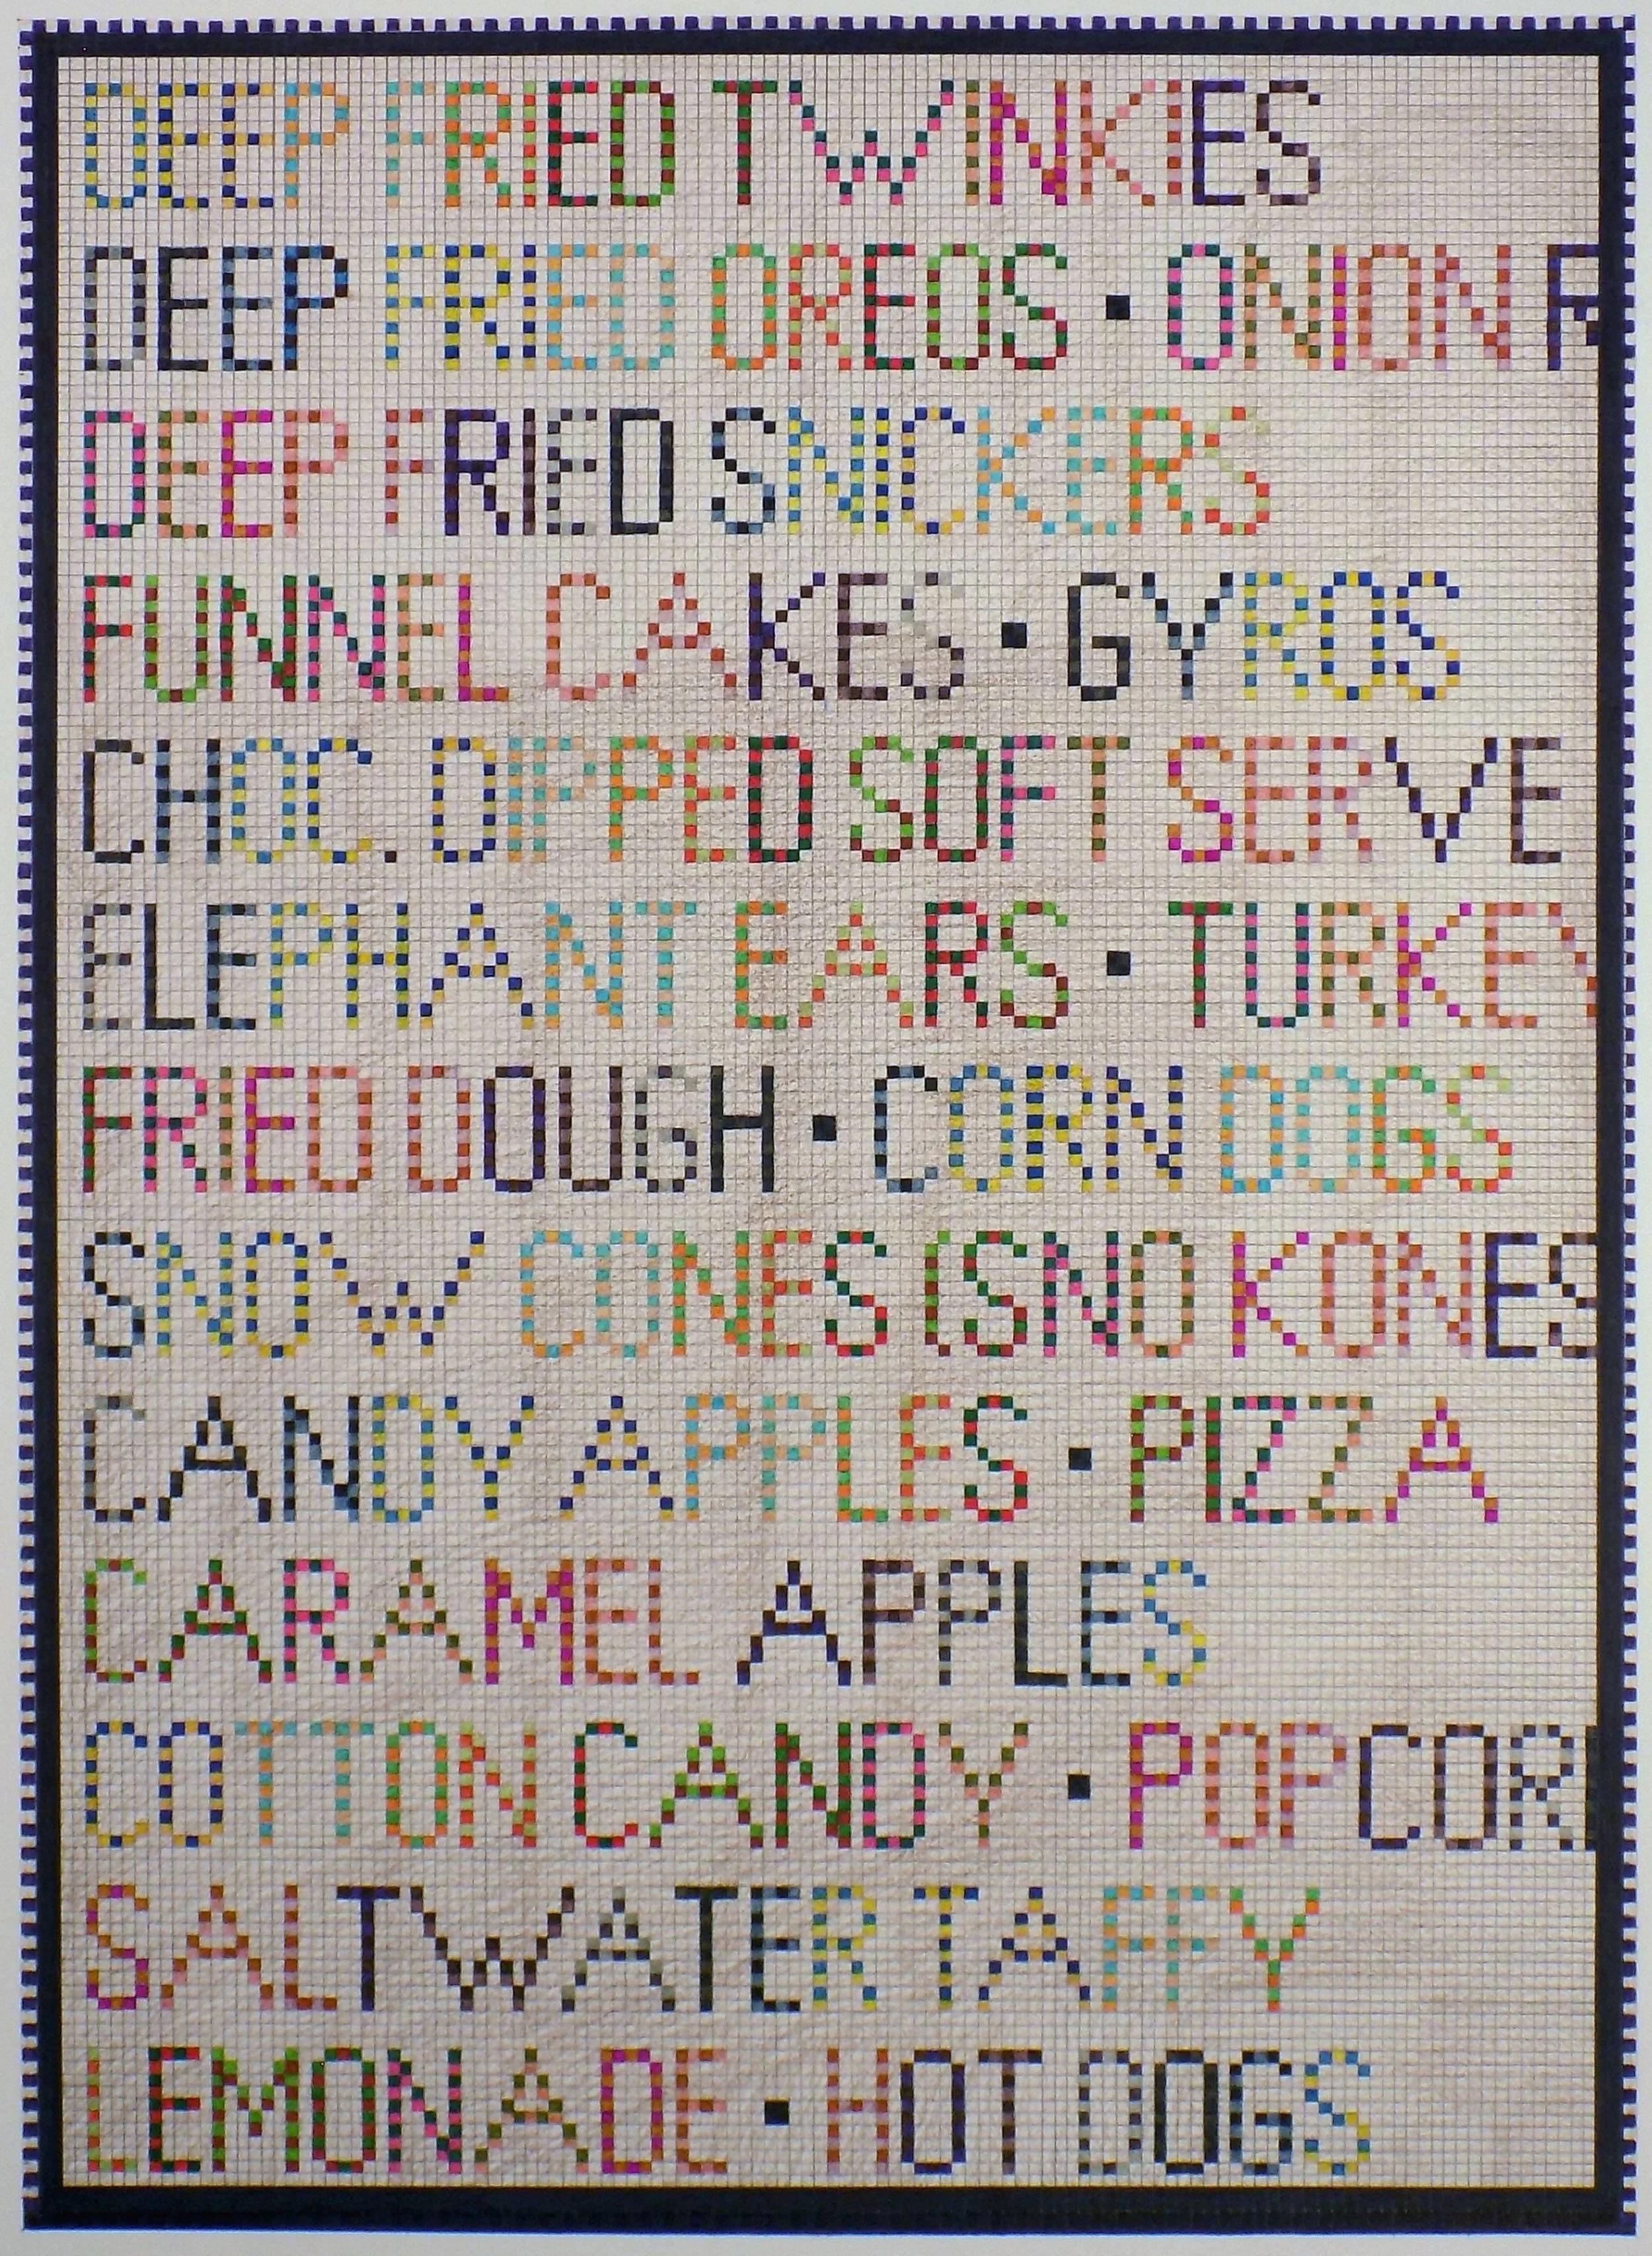 DEEP FRIED TWINKIES
DEEP FRIED OREOS · ONION R
DEEP FRIED SNICKERS
FUNNEL CAKES · GYROS
CHOC. DIPPED SOFT SERVE
ELEPHANT EARS · TURKEY
FRIED DOUGH · CORN DOGS
SNOW CONES (SNO KONES
CANDY APPLES · PIZZA
CARAMEL APPLES
COTTON CANDY · POPCORN
SALT WATER TAFFY
LEMONADE · HOT DOGS